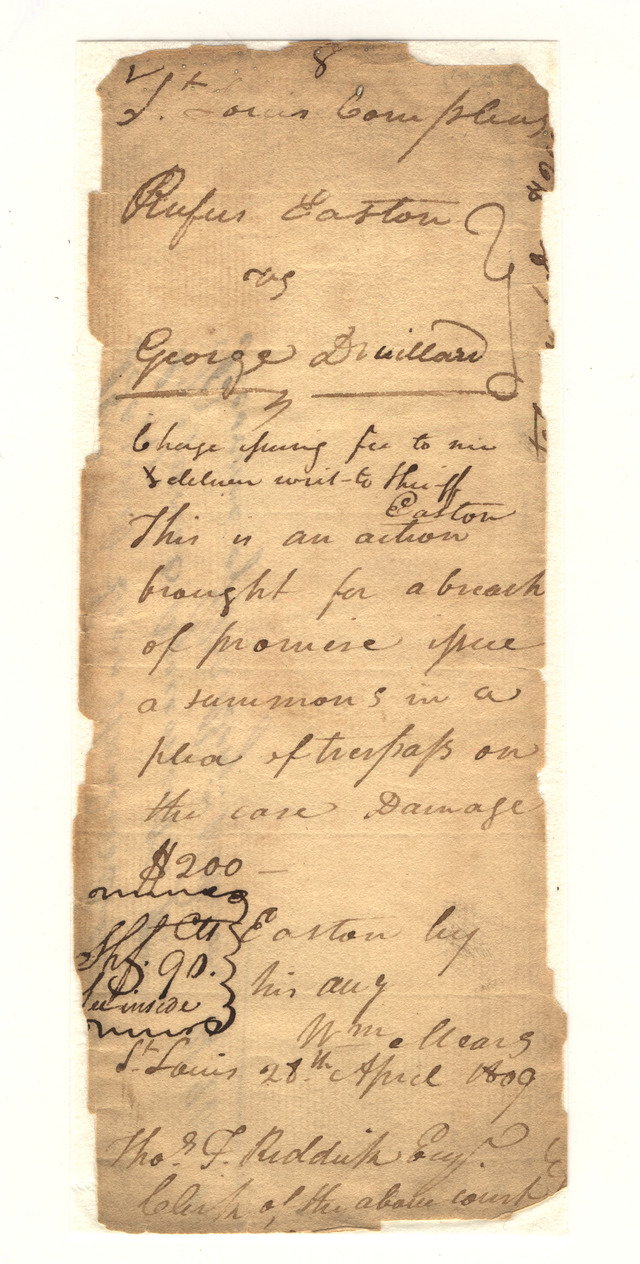 8
St. Louis Com pleas
Rufus Easton
vs
George Druillard
Charge issuing fee to me
& deliver writ to Sheriff
Easton
This is an action
brought for a breach
of promise issue
a summons in a
plea of trespass on
the case Damage
$200 —
Shf. Cts
$.90.
see inside
Easton by
his atty
Wm Mears
St. Louis 28th April 1809
Thos. F. Riddick Esqr.
Clerk of the above court